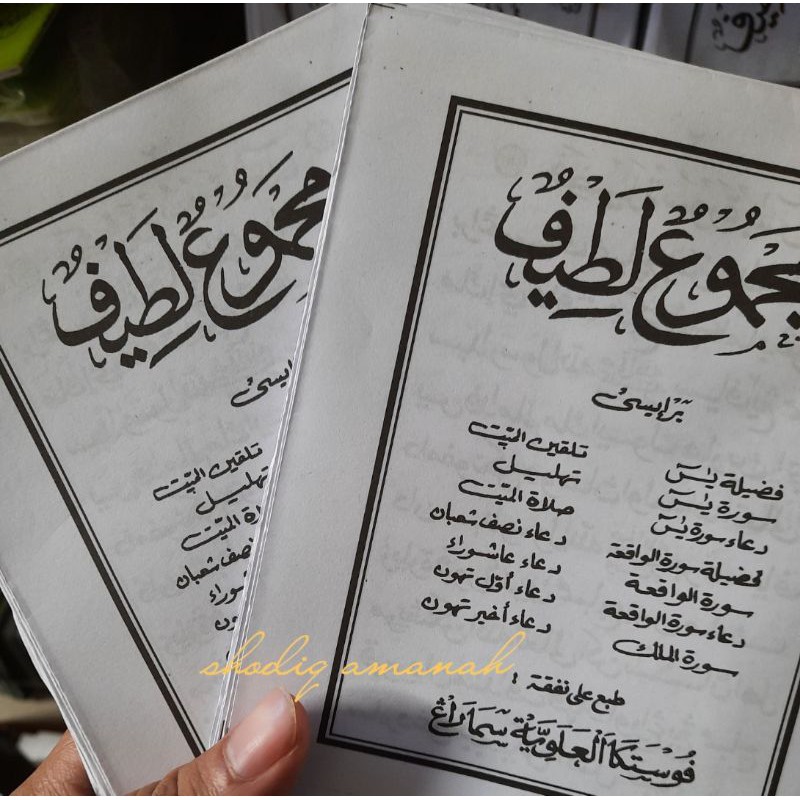 مجموع لطيف
برإيسى
فضيلة يٰسٓ
سورة يٰسٓ
دعاء سورة يٰسٓ
فضيلة سورة الواقعة
سورة الواقعة
دعاء سورة الواقعة
سورة الملك
تلقين الميّت
تهليل
صلاة الميّت
دعاء نصف شعبان
دعاء عاشوراء
دعاء أوّل تهون
دعاء أخير تهون
طبع على نفقة :
فوستكا العلوية سماراڠ
مجموع لطيف
برإيسى
تلقين الميّت
تهليل
الميّت
نصف شعبان
shodiq amanah